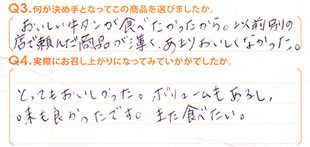 Q3.何が決め手となってこの商品を選びましたか。
おいしい牛タンが食べたかったから。以前別の
店で頼んだ商品が薄く、あまりおいしくなかった。
Q4.実際にお召し上がりになってみていかがでしたか。
とってもおいしかった。ボリュームもあるし、
味も良かったです。また食べたい。